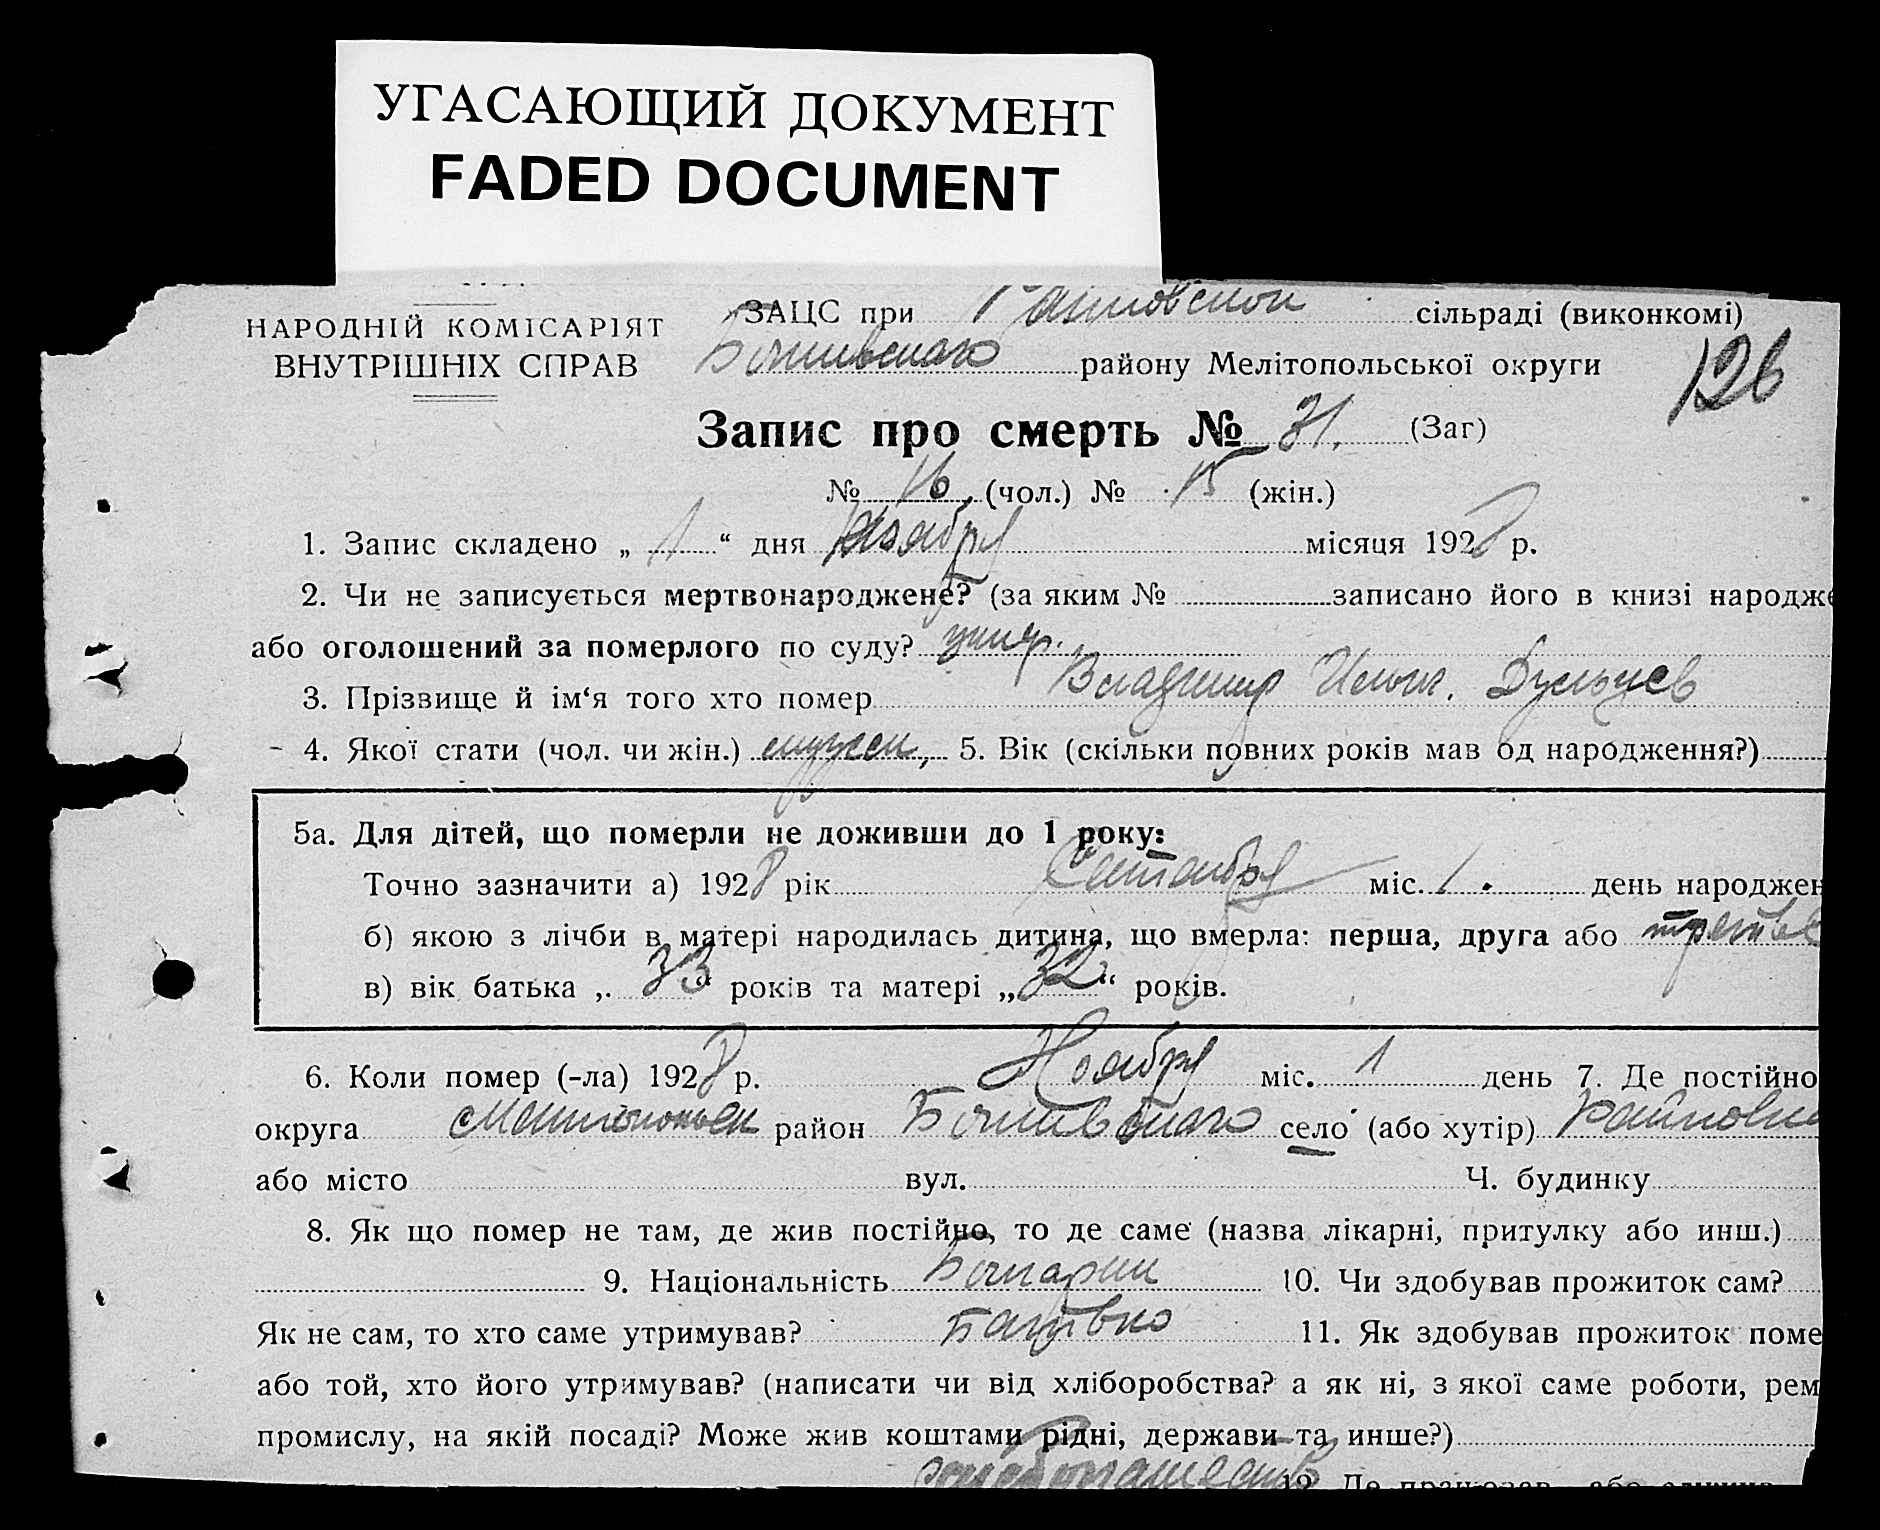 УГАСАЮЩИЙ ДОКУМЕНТ
FADED DOCUMENT
НАРОДНІЙ КОМІСАРІЯТ
ВНУТРІШНІХ СПРАВ
ЗАЦС при сільраді (виконкомі)
району Мелітопольської округи
126
Запис про смерть № 31. (Заг)
№ 16 (чол.) № 15 (жін.)
1. Запис складено „ 1 “ дня Ноября місяця 1928 р.
2. Чи не записується мертвонароджене? (за яким № записано його в книзі народже
або оголошений за померлого по суду? умер.
3. Прізвище й ім‘я того хто помер Владимир Ильич. Дульцев
4. Якої стати (чол. чи жін.) мужск, 5. Вік (скільки повних років мав од народження?)
5а. Для дітей, що померли не доживши до 1 року:
Точно зазначити а) 1928 рік Сентября міс. 1. день народжен
б) якою з лічби в матері народилась дитина, що вмерла: перша, друга або
в) вік батька „ 33 “ років та матері „ 32 “ років.
6. Коли помер (-ла) 1928 р. Ноября міс. 1 день 7. Де постійно
округа район село (або хутір)
або місто вул. Ч. будинку
8. Як що помер не там, де жив постійно, то де саме (назва лікарні, притулку або инш.)
9. Національність Болгарин 10. Чи здобував прожиток сам?
Як не сам, то хто саме утримував? Батько 11. Як здобував прожиток поме
або той, хто його утримував? (написати чи від хліборобства? а як ні, з якої саме роботи, рем
промислу, на якій посаді? Може жив коштами рідні, держави та инше?)